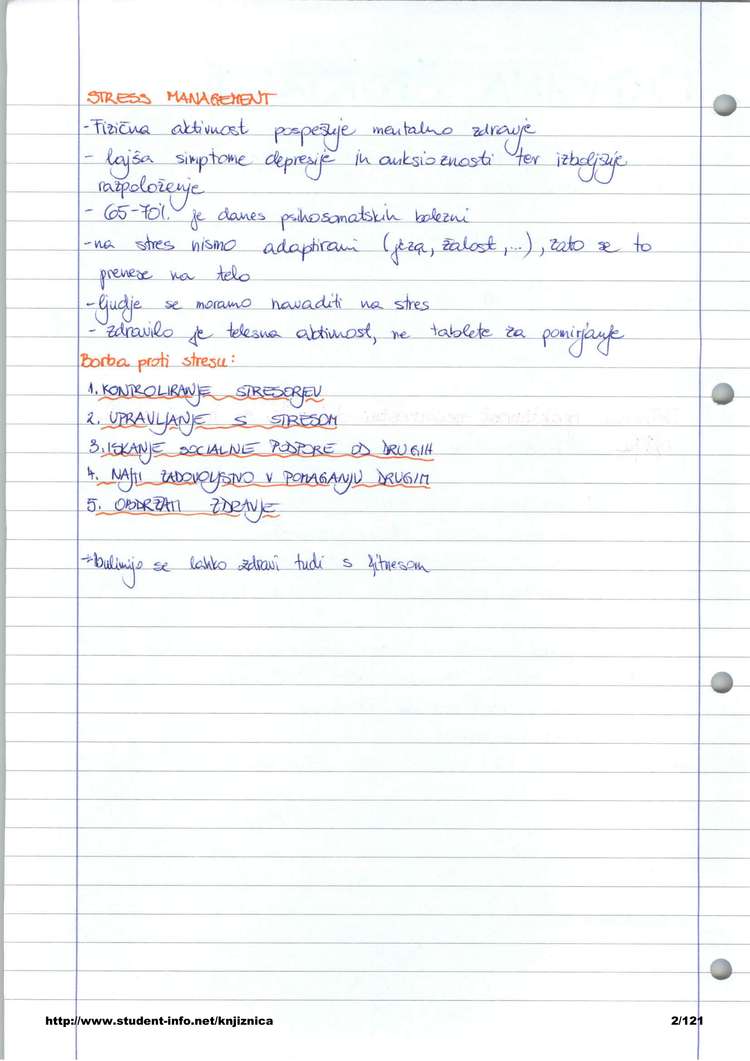 STRESS MANAGEMENT
- Fizična aktivnost pospešuje mentalno zdravje
- lajša simptome depresije in anksioznosti ter izboljšuje
razpoloženje
- 65-70% je danes psihosomatskih bolezni
- na stres nismo adaptirani (jeza, žalost,...), zato se to
prenese na telo
- ljudje se moramo navaditi na stres
- zdravilo je telesna aktivnost, ne tablete za pomirjanje
Borba proti stresu:
1. KONTROLIRANJE STRESORJEV
2. UPRAVLJANJE S STRESOM
3. ISKANJE SOCIALNE PODPORE OD DRUGIH
4. NAJTI ZADOVOLJSTVO V POMAGANJU DRUGIM
5. OBDRŽATI ZDRAVJE
→ bulimijo se lahko zdravi tudi s fitnesom
http://www.student-info.net/knjiznica 2/121